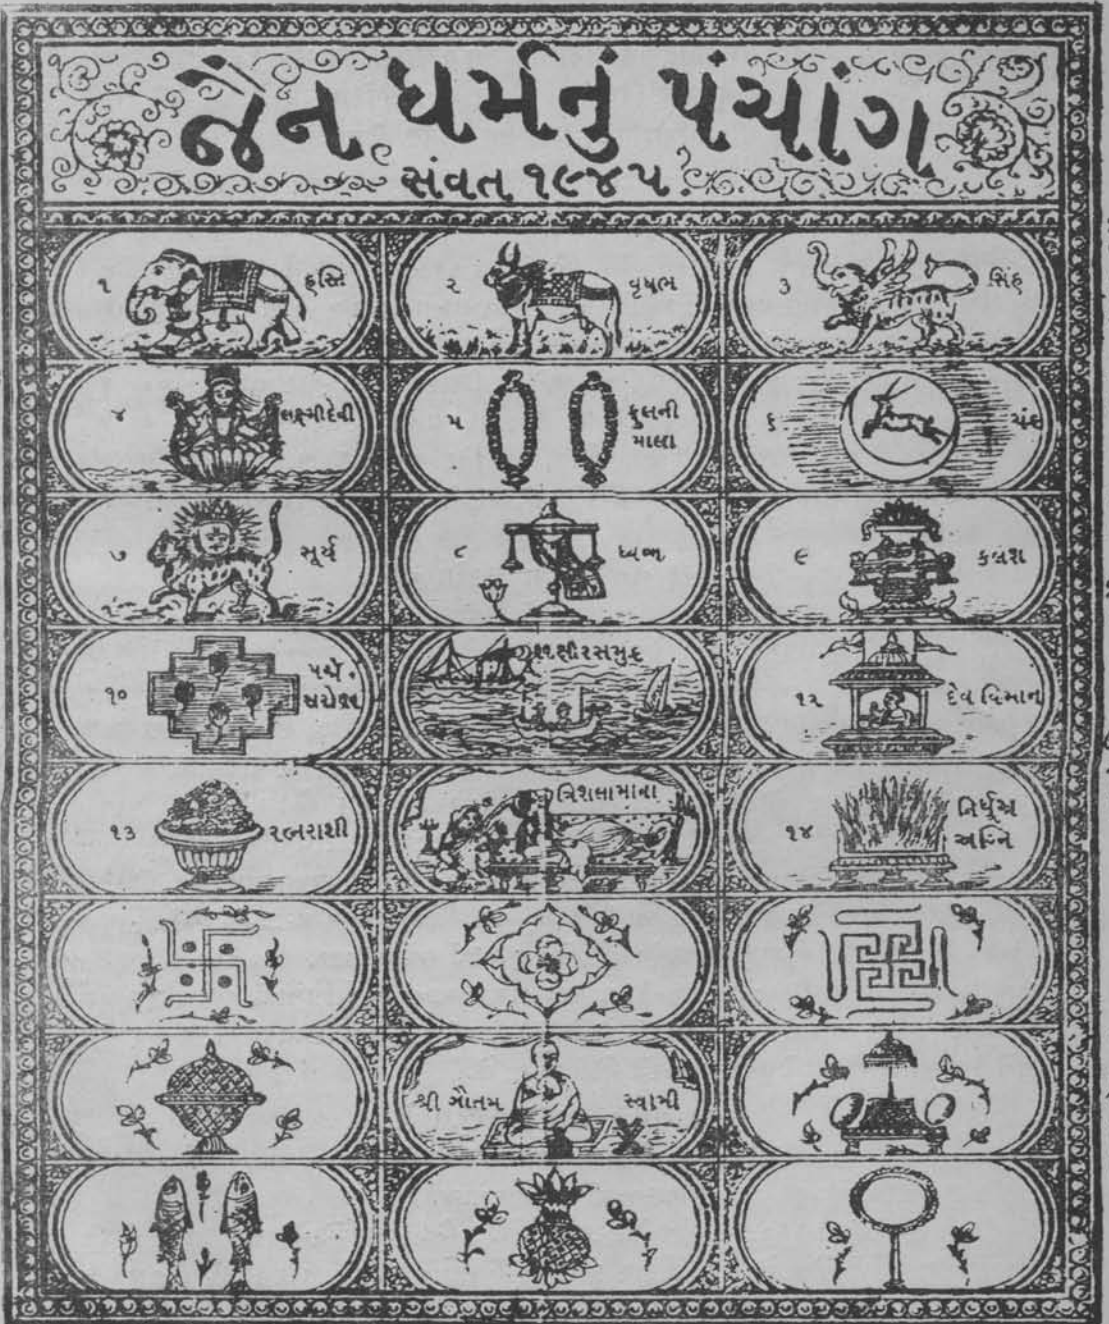 જૈન ધર્મનું પંચાંગ
સંવત ૧૯૪૫
૧ હસ્તિ
૨ વૃષભ
૩ સિંહ
૪ લક્ષ્મીદેવી
૫ ફુલની
માલા
૬ ચંદ્ર
૭ સૂર્ય
૮ ધ્વજ
૯ કલશ
૧૦ પદ્મ
સરોવર
૧૧ ક્ષીરસમુદ્ર
૧૨ દેવ વિમાન
૧૩ રત્નરાશી
ત્રિશલામાતા
૧૪ નિર્ધુમ્ર
અગ્નિ
શ્રી ગૌતમ સ્વામી